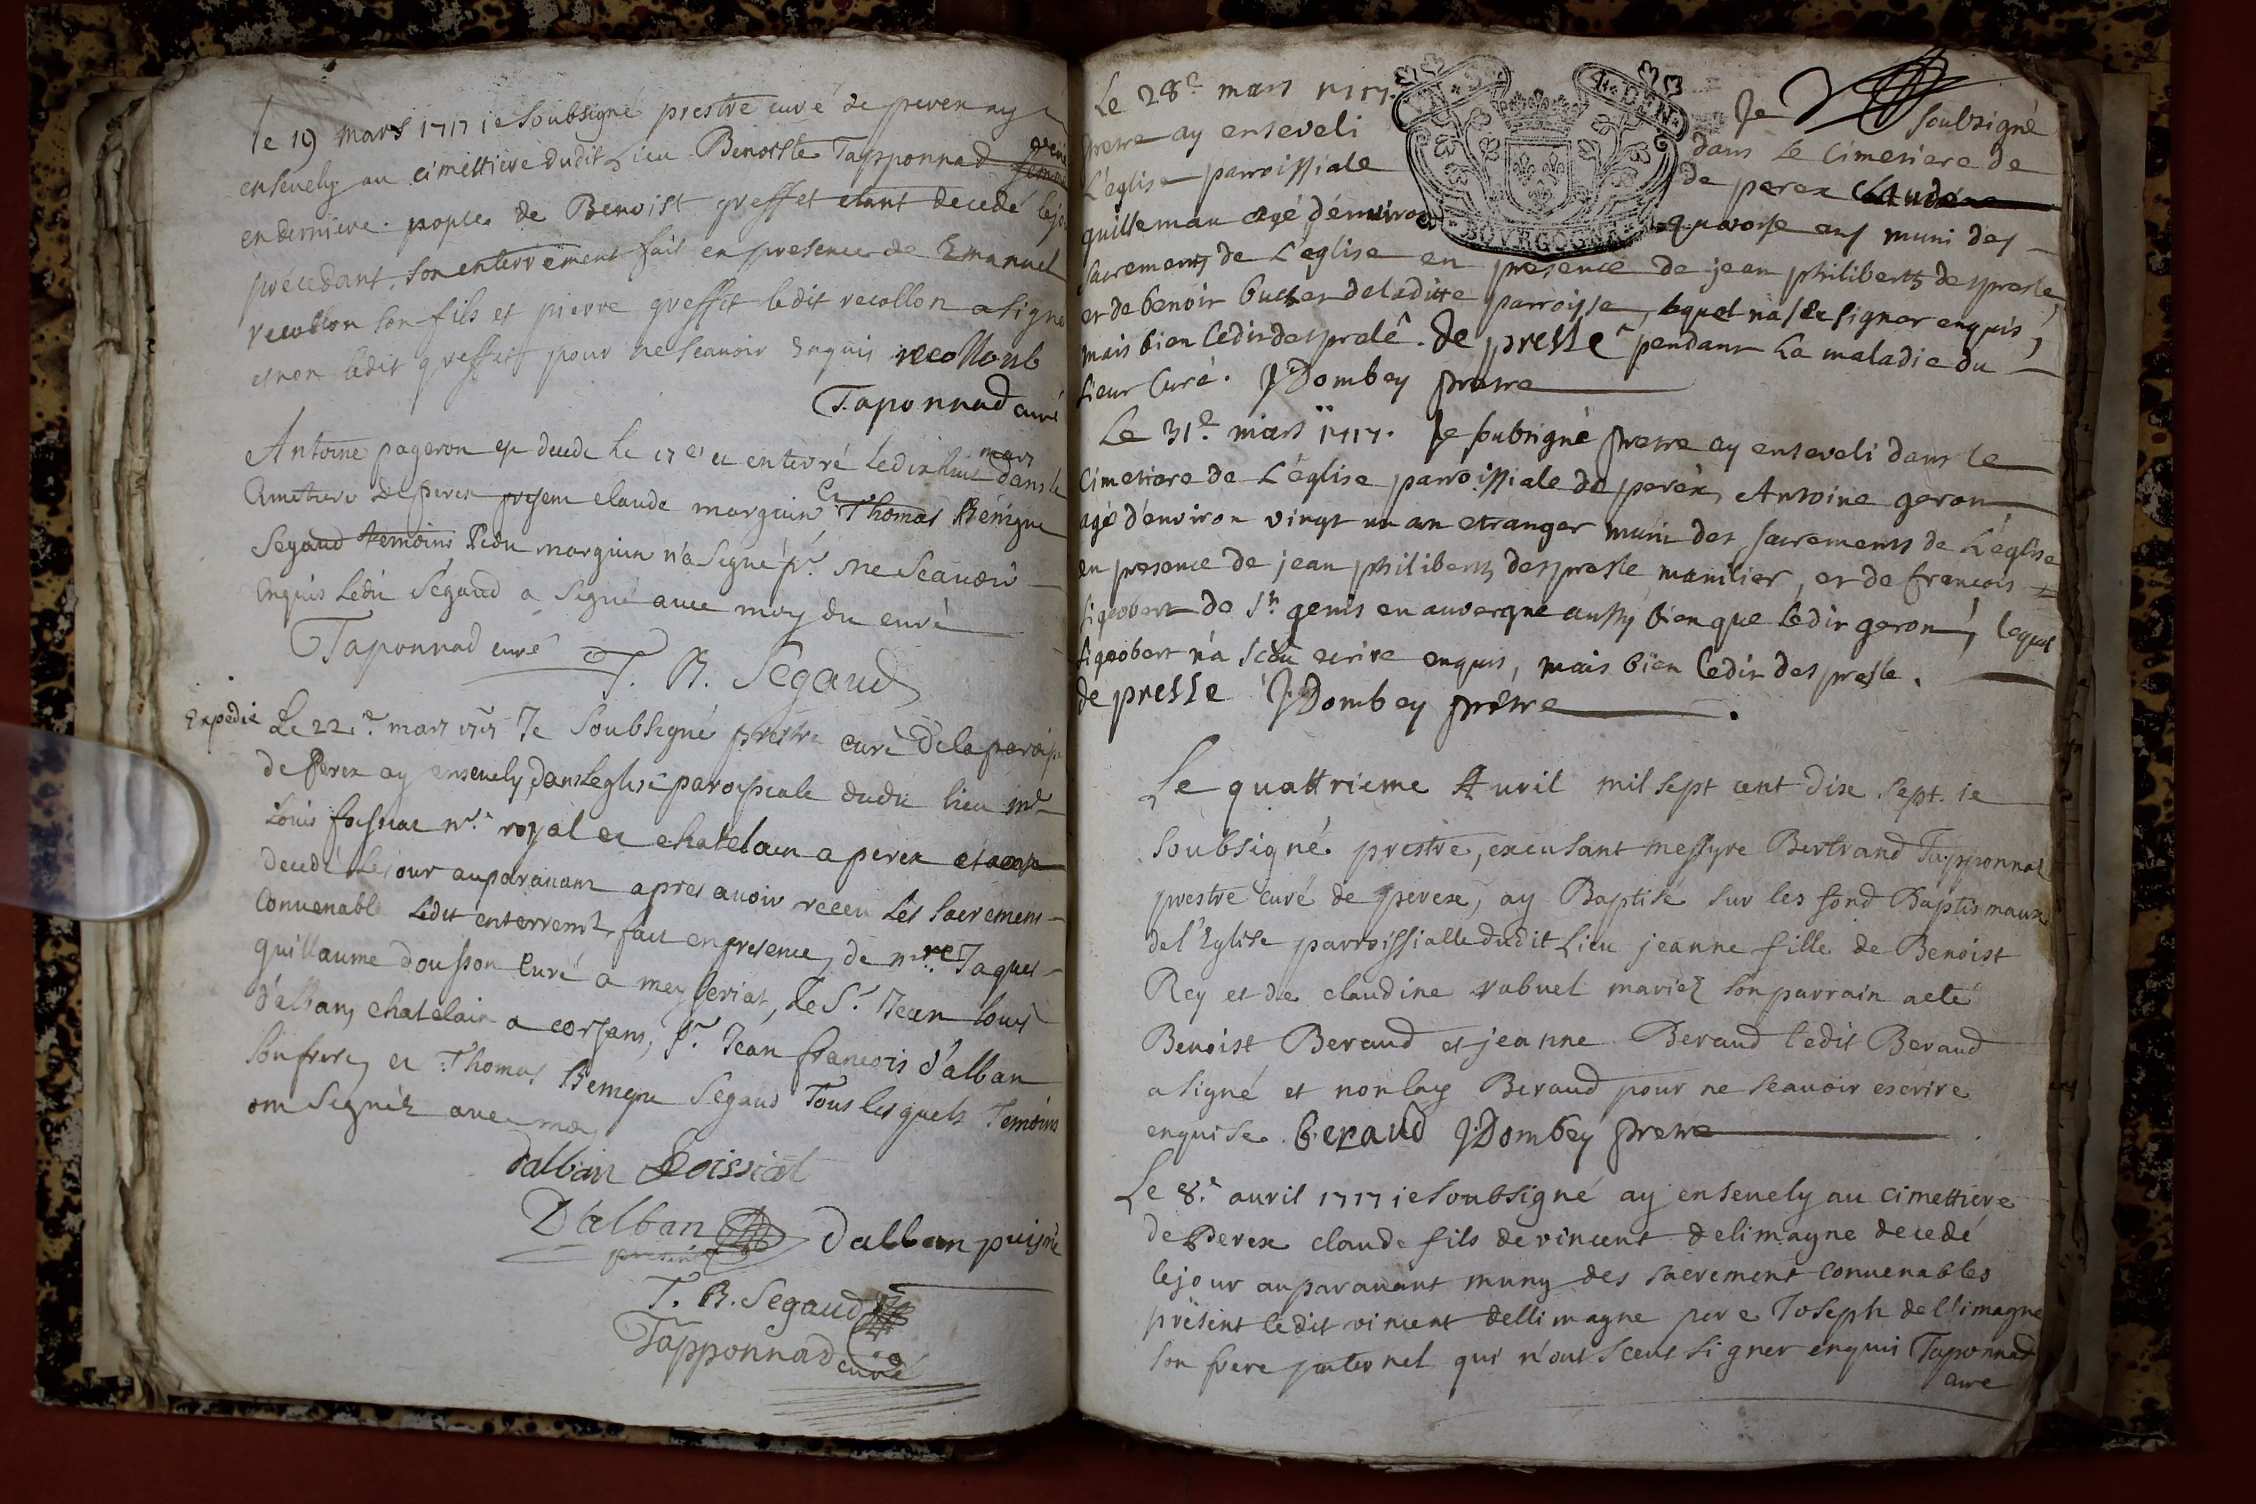 le 19 mars 1717 ie soubsigné prestre curé de perex ay
ensevely au cimettiere dudit Lieu Benoiste Tapponnad femme
en derniere nopces de Benoist greffet etant decedé le jo
précédant, son enterrement fait en presence de Emanuel
recollon son fils et pierre greffet ledit recollon a signé
et non ledit greffet pour ne scauoir Enquis recollonb
Taponnad curé
mars
Antoine pageron est decede le 17e et enterré ledixhuit dans le
Cimetiere de perex present claude marguin et Thomas Bénigne
Segaud temoins ledit marguin n'a signé pr. ne scauoir
Enquis ledit Segaud a signé avec moy dit curé
Taponnad curé
T. B. Segaud
Expedié Le 22.e mars 1717 Je Soubsigné prestre curé de la paroisse
de Perex ay ensevely dans leglise paroissiale dudit lieu me
Louis foissiat nre. royal et chatelain a perex
decedé le jour auparavant apres avoir receu les sacremens
Convenable ledit enterremt fait en presence de mre Jaques
guillaume dousson Curé a mezeriat, de Sr. Jean Louis
d'alban chatelain a corsans, Sr. Jean francois d'alban
son frere, et Thomas Benigne Segaud Tous lesquels Temoins
ont signéz avec moy
dalban foissiat
D'alban dalban puisné
present
T. B. Segaud
Tapponnad curé
Le 28e mars 1717. Je soubsigné
pretre ay enseveli dans Le Cimetiere de
L'eglise parroissiale de perex Claude
guilleman agé d'environ quatorse ans muni des
sacrements de L'eglise en presence de jean philibert despresle
et de benoit buchet de laditte parroisse, lequel na sceu signer enquis,
mais bien ledit despresle. De presle pendant La maladie du
sieur Curé. J Dombey pretre
Le 31e mars 1717. Je soubsigné pretre ay enseveli dans le
Cimetiere de L'église parroissiale de perex, Antoine geron
agé d'environ vingt un an etranger muni des sacrements de L'église
en presence de jean philibert despresle manilier, et de francois
sigeobert de St. genis en auvergne aussy bien que ledit geron, lequel
sigeobert n'a sceu ecrire enquis, mais bien ledit despresle.
de presle J Dombey pretre
Le quattrieme Auril mil sept cent dix sept. ie
soubsigné prestre, excusant messyre Bertrand Tapponnat
prestre curé de perex, ay Baptisé sur les fond Baptismaux
de l'Eglise parroissialle dudit Lieu jeanne fille de Benoist
Rey et de claudine rabuel mariez son parrain a eté
Benoist Beraud et jeanne Beraud ledit Beraud
a signé et non lad Beraud pour ne scauoir escrire
enquise. beraud J Dombey pretre
Le 8.e auril 1717 ie soubsigné ay ensevely au cimettiere
de Perex claude fils de vincent delimagne decedé
le jour auparauant muny des sacrement convenables
présent ledit vincent dellimagne pere Joseph dellimagne
son frere paternel qui n'ont sceut signer enquis Taponnad
cure
BOURGOGNE